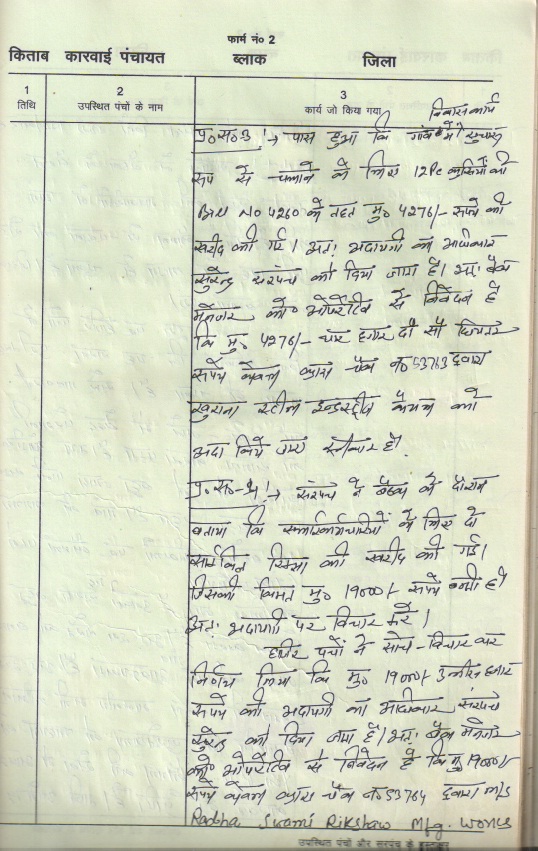 फार्म नं० 2
किताब कारवाई पंचायत ब्लाक जिला
1 2 3
तिथि उपस्थित पंचों के नाम कार्य जो किया गया विकास कार्य
प्र०स०3 !→ पास हुआ कि गांव में सुचारू
रूप से चलाने के लिए 12Pc कुर्सियों की
Bill No 4260 के तहत मु० 4276/- रूपये की
खरीद की गई। अतः अदायगी का अधिकार
सुरेन्द्र सरपंच को दिया जाता है। अतः बैंक
मैनेजर को० ओपरेटिव से निवेदन है
कि मु० 4276/- चार हजार दो सौ छिहतर
रूपये केवल द्वारा चैक न०53763 द्वारा
खुराना स्टील इन्डस्ट्रीज कैथल को
अदा किये जाए स्वीकार है।
प्र०स०-4 !→ सरपंच ने बैठक के दौरान
बताया कि सफाई कर्मचारियों के लिए दो
साईकिल रिक्सा की खरीद की गई।
जिसकी किमत मु० 19000/- रूपये बनती है।
अतः अदायगी पर विचार करें।
हाजिर पंचों ने सोच-विचार कर
निर्णय लिया कि मु० 19000/- उन्नीस हजार
रूपये की अदायगी का अधिकार सरपंच
सुरेन्द्र को दिया जाता है। अतः बैंक मैनेजर
को० ओपरेटिव से निवेदन है कि मु० 19000/-
रूपये केवल द्वारा चैक न०53764 द्वारा M/S
Radha Swami Rikshaw Mfg. Works
उपस्थित पंचों और सरपंच के हस्ताक्षर